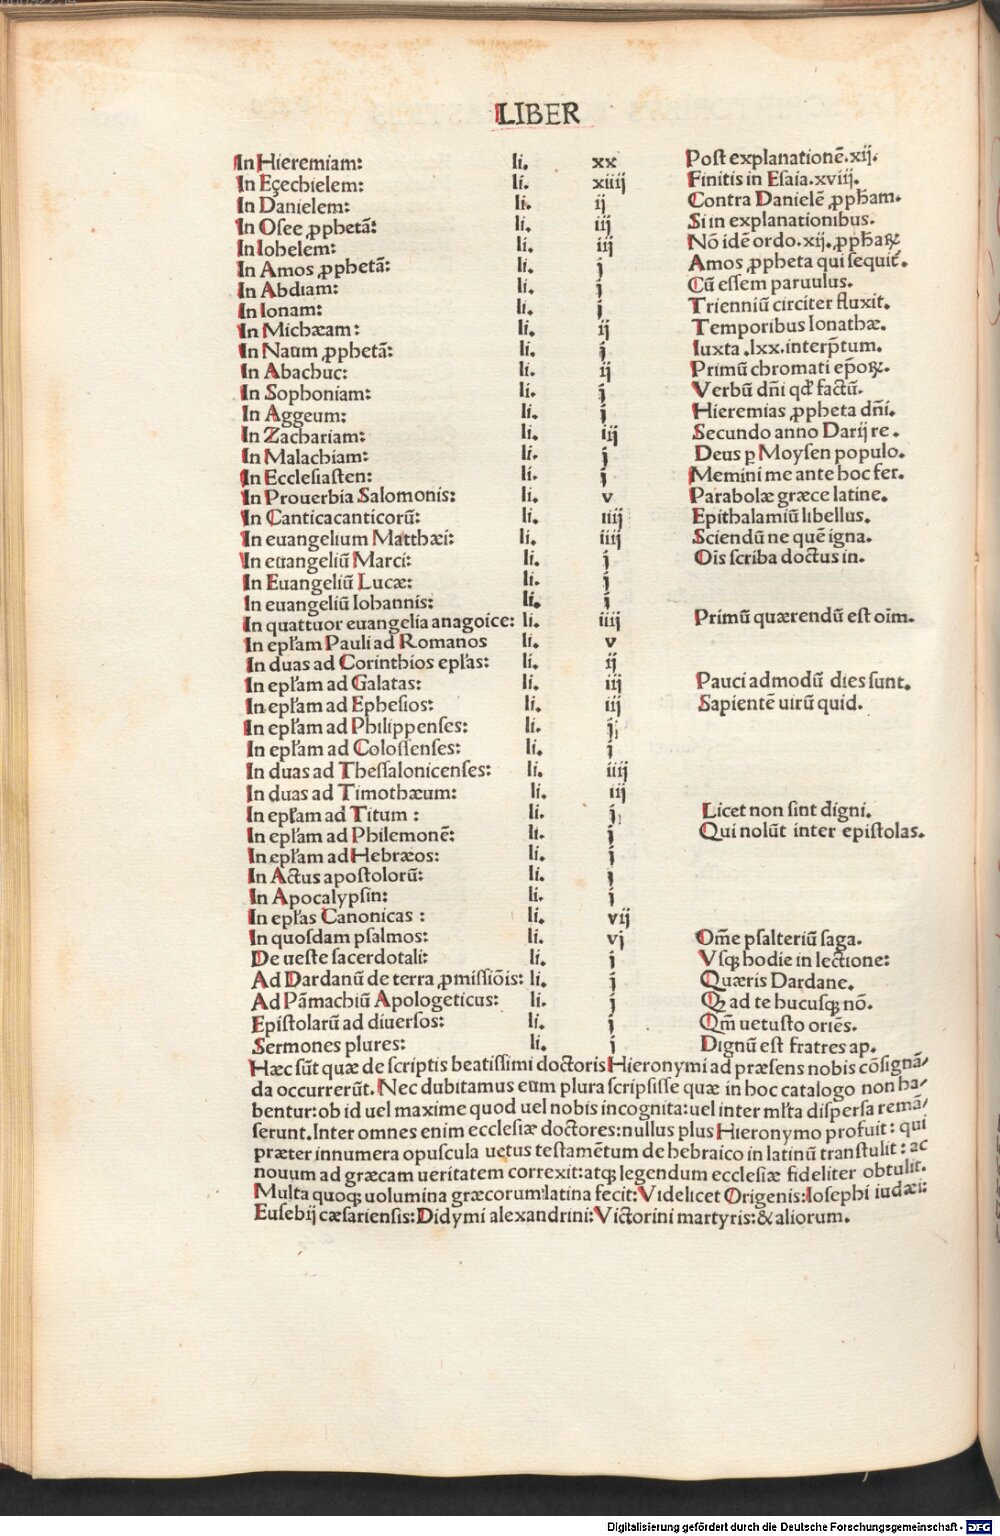 LIBER
In Hieremiam: li. xx Post explanationē.xij.
In Eçechielem: li. xiiij Finitis in Esaia.xviij.
In Danielem: li. ij Contra Danielē ꝓpħam.
In Osee ꝓphetā: li. iij Si in explanationibus.
In Iohelem: li. iij Nō idē ordo.xij.ꝓpħaꝝ
In Amos ꝓphetā: li. j Amos ꝓpheta qui sequit̄.
In Abdiam: li. j Cū essem paruulus.
In Ionam: li. j Trienniū circiter fluxit.
In Michæam: li. ij Temporibus Ionathæ.
In Naum ꝓphetā: li. j Iuxta .lxx.interp̄tum.
In Abachuc: li. ij Primū chromati ep̄oꝝ.
In Sophoniam: li. j Verbū dn̄i qd̓ factū.
In Aggeum: li. j Hieremias ꝓpheta dn̄i.
In Zachariam: li. iij Secundo anno Darij re.
In Malachiam: li. j Deus ꝑ Moysen populo.
In Ecclesiasten: li. j Memini me ante hoc fer.
In Prouerbia Salomonis: li. v Parabolæ græce latine.
In Canticacanticorū: li. iiij Epithalamiū libellus.
In euangelium Matthæi: li. iiij Sciendū ne quē igna.
In euangeliū Marci: li. j Oīs scriba doctus in.
In Euangeliū Lucæ: li. j
In euangeliū Iohannis: li. j
In quattuor euangelia anagoice: li. iiij Primū quærendū est oīm.
In epl̓am Pauli ad Romanos li. v
In duas ad Corinthios epl̓as: li. ij
In epl̓am ad Galatas: li. iij Pauci admodū dies sunt.
In epl̓am ad Ephesios: li. iij Sapientē uirū quid.
In epl̓am ad Philippenses: li. j
In epl̓am ad Colossenses: li. j
In duas ad Thessalonicenses: li. iiij
In duas ad Timothæum: li. iij
In epl̓am ad Titum : li. j Licet non sint digni.
In epl̓am ad Philemonē: li. j Qui nolūt inter epistolas.
In epl̓am ad Hebræos: li. j
In Actus apostolorū: li. j
In Apocalypsin: li. j
In epl̓as Canonicas : li. vij
In quosdam psalmos: li. vj Om̄e psalteriū saga.
De ueste sacerdotali: li. j Vsqꝫ hodie in lectione:
Ad Dardanū de terra ꝓmissiōis: li. j Quæris Dardane.
Ad Pāmachiū Apologeticus: li. j Qꝫ ad te hucusqꝫ nō.
Epistolarū ad diuersos: li. j Qm̄ uetusto oriēs.
Sermones plures: li. j Dignū est fratres ap.
Hæc sūt quæ de scriptis beatissimi doctoris Hieronymi ad præsens nobis cōsignā/
da occurrerūt. Nec dubitamus eum plura scripsisse quæ in hoc catalogo non ha/
bentur:ob id uel maxime quod uel nobis incognita:uel inter ml̓ta dispersa remā/
serunt.Inter omnes enim ecclesiæ doctores:nullus plus Hieronymo profuit: qui
præter innumera opuscula uetus testamētum de hebraico in latinū transtulit: ac
nouum ad græcam ueritatem correxit:atqꝫ legendum ecclesiæ fideliter obtulit.
Multa quoqꝫ uolumina græcorum:latina fecit:Videlicet Origenis:Iosephi iudæi:
Eusebij cæsariensis:Didymi alexandrini:Victorini martyris:& aliorum.
Digitalisierung gefördert durch die Deutsche Forschungsgemeinschaft - DFG